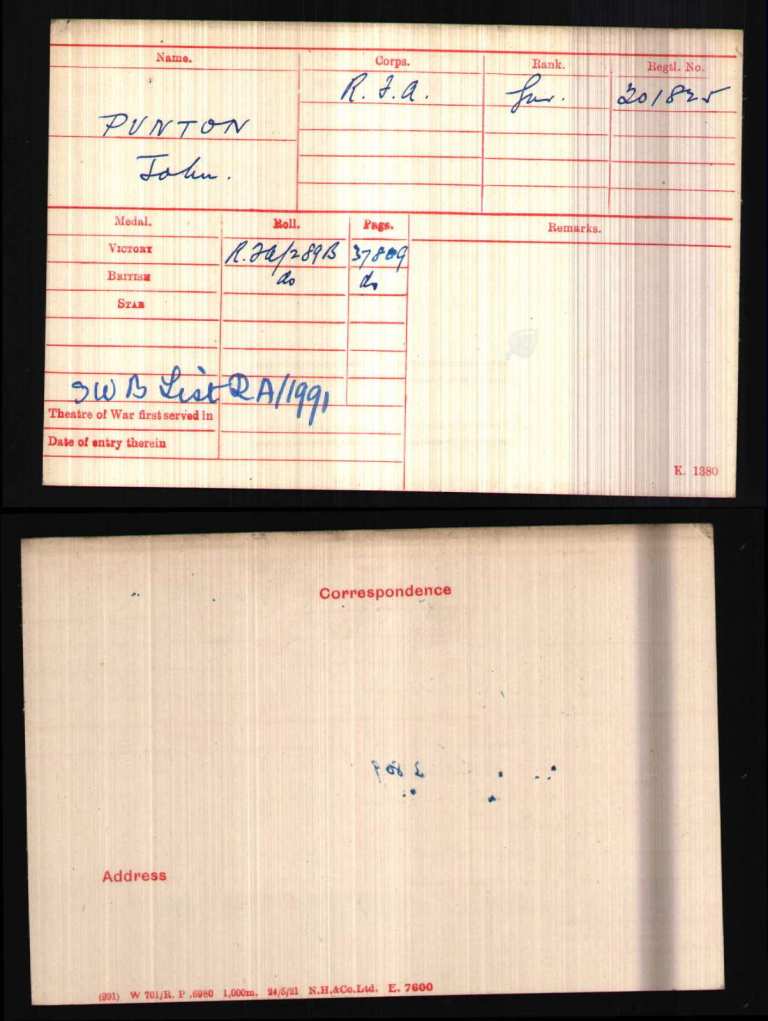 Name. Corps. Rank. Regtl. No.
R. F. A. Gnr. 201825
PUNTON
John.
Medal. Roll. Page. Remarks.
VICTORY R.F.A/289B 37809
BRITISH do do
STAR
SWB List RA/1991
Theatre of War first served in
Date of entry therein
K. 1380
Correspondence
Address
(991) W 701/R. P .6980 1,000m. 24/5/21 N.H.&Co.Ltd. E. 7600